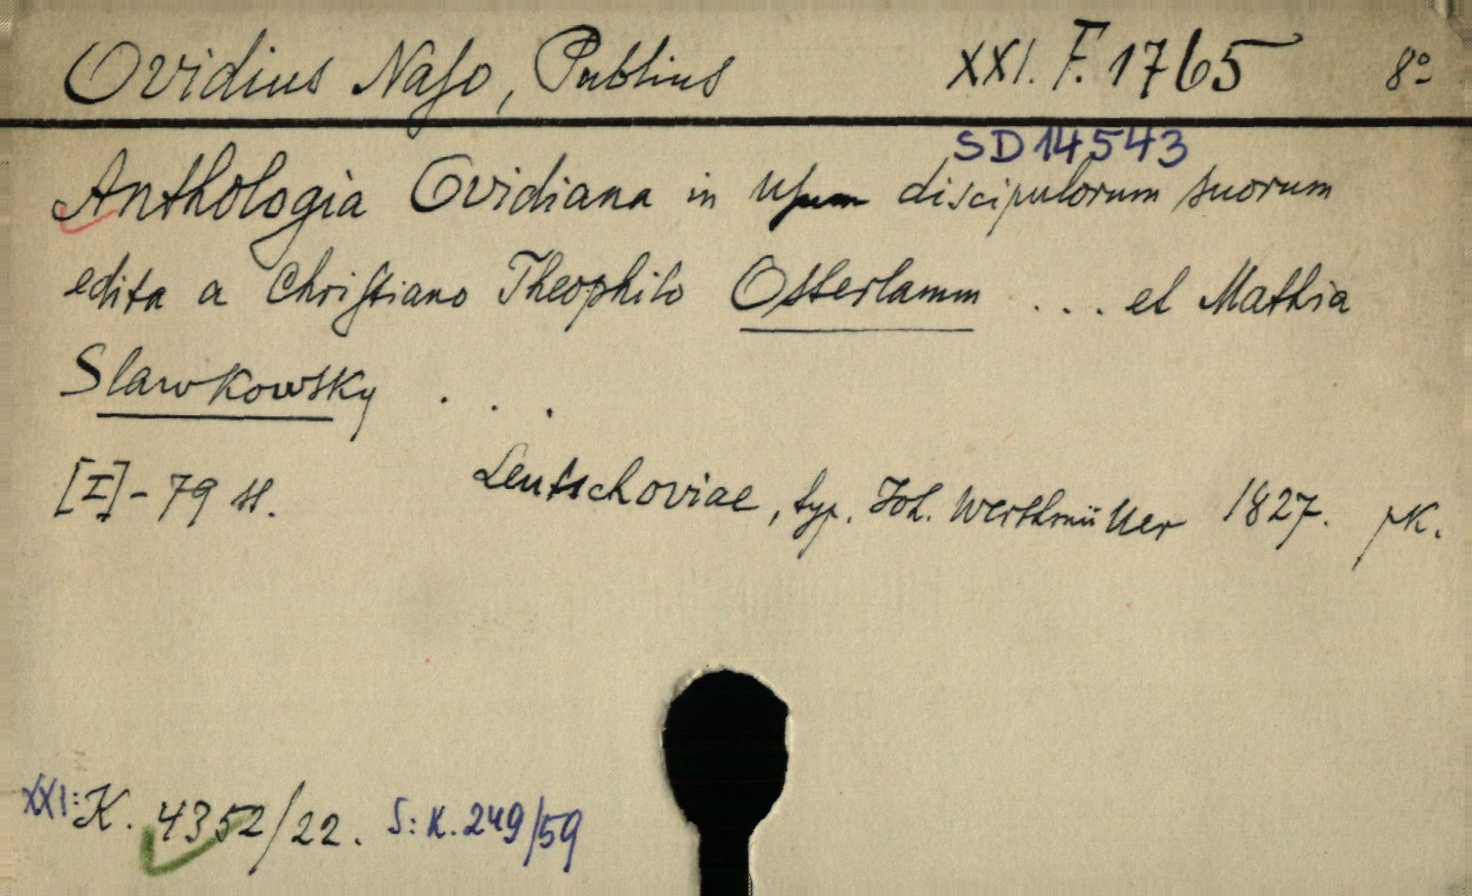 Ovidius Naso, Publius XXI. F. 1765 8°
SD 14543
Anthologia Ovidiana in usum discipulorum suorum
edita a Christiano Theophilo Osterlamm ... et Mathia
Slawkowsky ...
[I]-79 ll. Leutschoviae, typ. Joh. Werthmüller 1827. pK.
XXI: K. 4352/22. S: K. 249/59